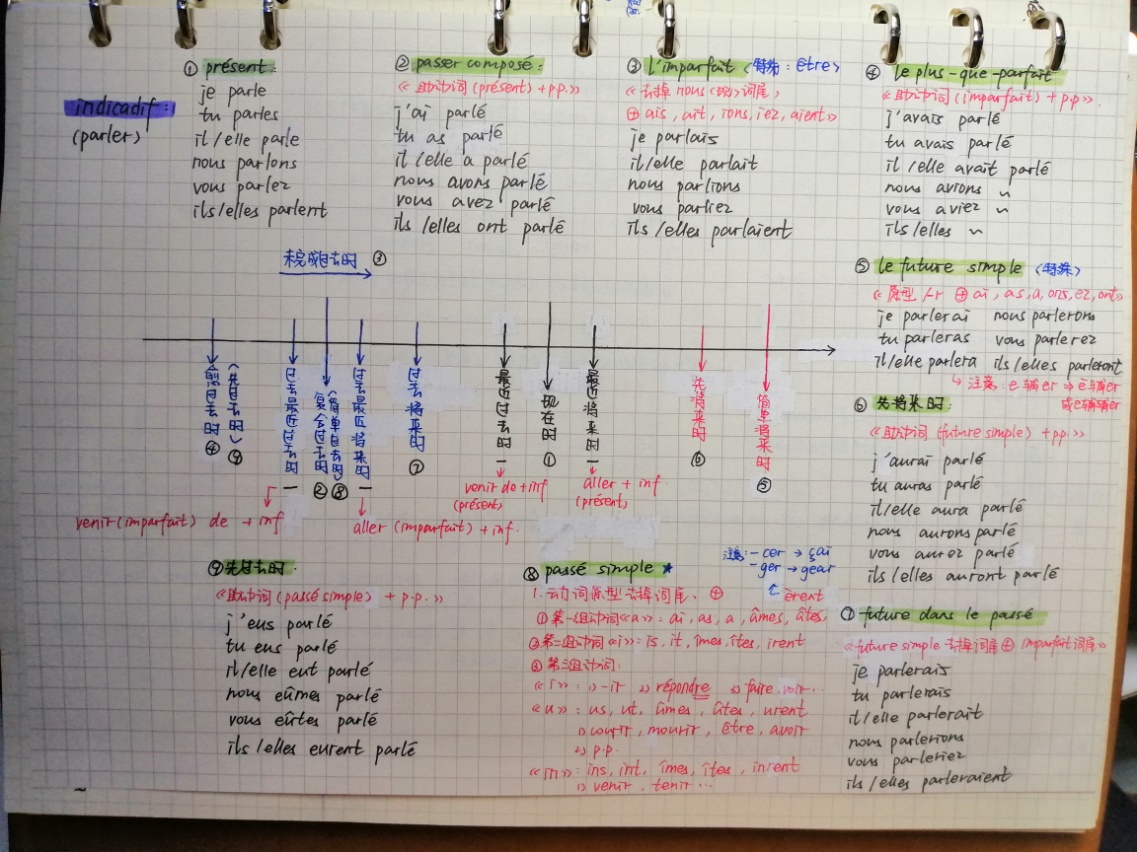 indicadif:
(parler)
① présent:
je parle
tu parles
il/elle parle
nous parlons
vous parlez
ils/elles parlent
② passer composé:
《助动词(présent)+p.p.》
j'ai parlé
tu as parlé
il/elle a parlé
nous avons parlé
vous avez parlé
ils/elles ont parlé
③ L'imparfait (特殊: être)
《去掉nous(的)词尾,
⊕ais, ait, ions, iez, aient》
je parlais
il/elle parlait
nous parlions
vous parliez
ils/elles parlaient
④ le plus-que-parfait
《助动词(imparfait)+p.p》.
j'avais parlé
tu avais parlé
il/elle avait parlé
nous avions ~
vous aviez ~
ils/elles ~
⑤ le future simple (特殊)
《原型 /r ⊕ ai, as, a, ons, ez, ont》
je parlerai nous parlerons
tu parleras vous parlerez
il/elle parlera ils/elles parleront
注意: e辅er ⇒ è辅er
或e辅辅er
⑥ 先将来时:
《助动词(future simple)+pp.》
j'aurai parlé
tu auras parlé
il/elle aura parlé
nous aurons parlé
vous aurez parlé
ils/elles auront parlé
未完成过去时 ③
愈过去时 ④
(先过去时) ⑨
过去最近过去时
复合过去时 ②
(简单过去时) ⑧
过去最近将来时
过去将来时 ⑦
最近过去时
现在时 ①
最近将来时
先将来时 ⑥
简单将来时 ⑤
venir de + inf
(présent)
aller + inf.
(présent)
venir(imparfait) de + inf
aller (imparfait) + inf.
⑨先过去时.
《助动词(passé simple) + p.p.》
j'eus parlé
tu eus parlé
il/elle eut parlé
nous eûmes parlé
vous eûtes parlé
ils/elles eurent parlé
⑧ passé simple ★
注意: -cer → çai
-ger → geai
1. 动词原型去掉词尾. ⊕
èrent
①第一组动词《a》: ai, as, a, âmes, âtes,
②第二组动词《i》: is, it, îmes, îtes, irent
③第三组动词:
《i》: 1) -ir 2) répondre 3) faire, voir...
《u》: us, ut, ûmes, ûtes, urent
1) courir, mourir, être, avoir
2) p.p.
《in》: ins, int, îmes, îtes, inrent
1) venir, tenir...
⑦ future dans le passé
《future simple 去掉词尾 ⊕ imparfait 词尾》
je parlerais
tu parlerais
il/elle parlerait
nous parlerions
vous parleriez
ils/elles parleraient
~